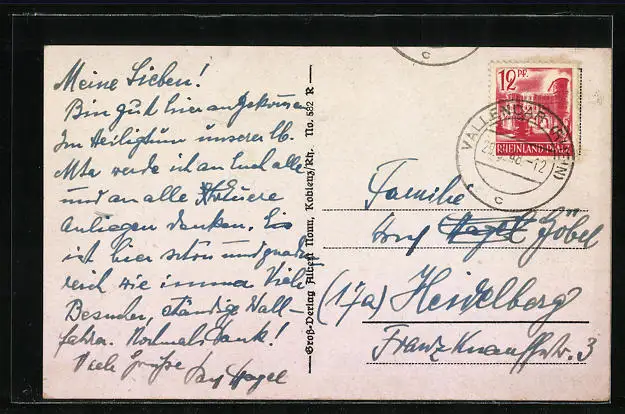 Meine Lieben!
Bin gut hier angekommen
Im Heiligtum unserer lb.
Mta werde ich an Euch alle
und an alle Euere
Anliegen denken. Es
ist hier schön und gnaden
reich wie immer Viele
Besucher, ständige Wall-
fahrer. Nochmals Dank!
Viele Grüße
Hagel
Groß-Verlag Albert Nonn, Koblenz/Rh. No. 582 R
C
12 PF.
RHEINLAND-PFALZ
VALLENDAR (RHEIN)
48.-12
c
Familie
Josef Göbel
(17a) Heidelberg
Franz Knauffstr. 3